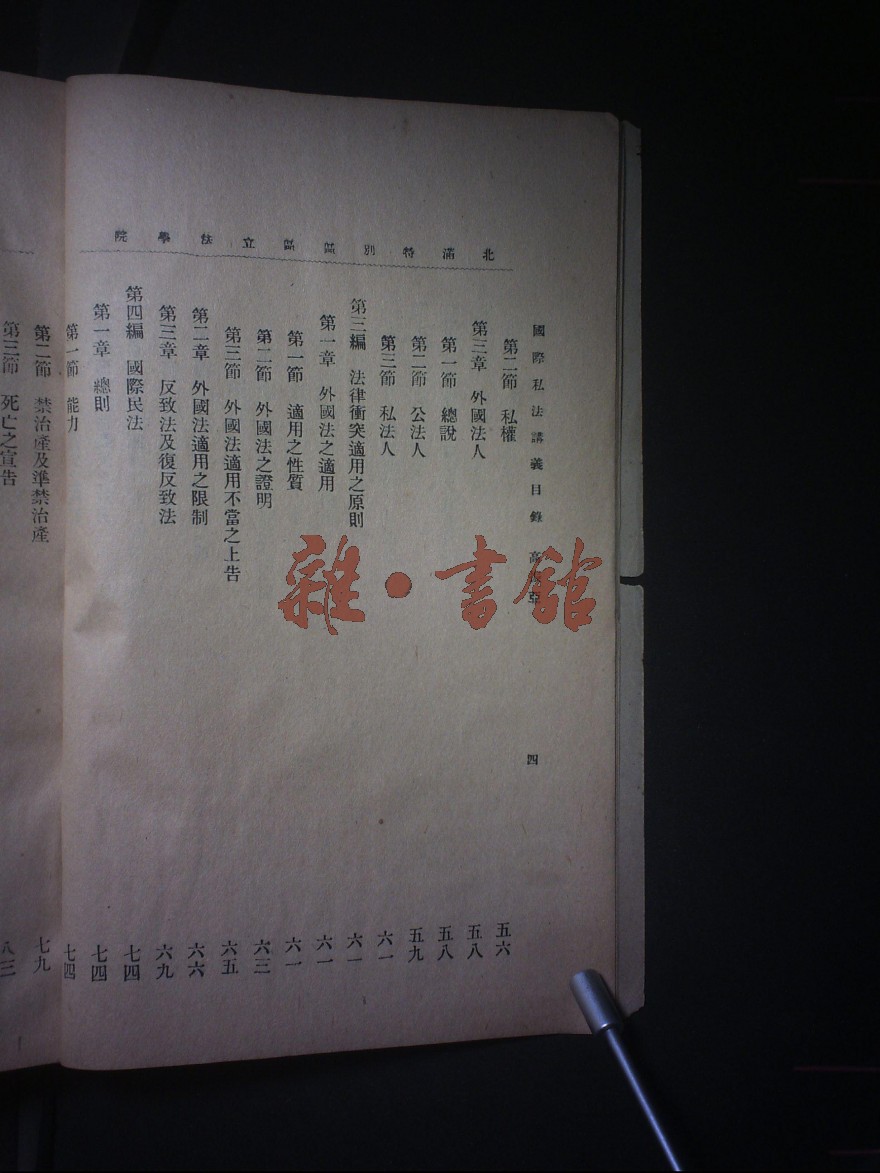 北滿特別區區立法學院
國際私法講義目錄 高 亞 四
第二節 私權 五六
第三章 外國法人 五八
第一節 總說 五八
第二節 公法人 五九
第三節 私法人 六一
第三編 法律衝突適用之原則 六一
第一章 外國法之適用 六一
第一節 適用之性質 六一
第二節 外國法之證明 六三
第三節 外國法適用不當之上告 六五
第二章 外國法適用之限制 六六
第三章 反致法及復反致法 六九
第四編 國際民法 七四
第一章 總則 七四
第一節 能力 七四
第二節 禁治產及準禁治產 七九
第三節 死亡之宣告
雜·書館